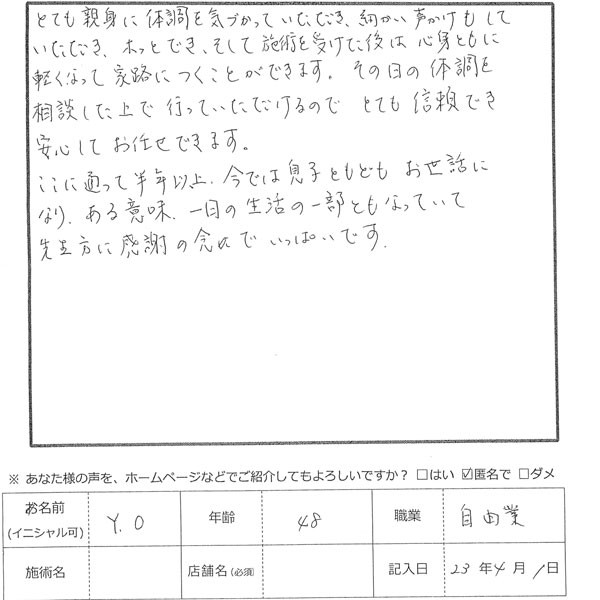 とても親身に体調を気づかっていただき、細かい声かけもして
いただき、ホッとでき、そして施術を受けた後は心身ともに
軽くなって家路につくことができます。その日の体調を
相談した上で行っていただけるので とても信頼でき
安心してお任せできます。
ここに通って半年以上、今では息子ともども お世話に
なり、ある意味、一日の生活の一部ともなっていて
先生方に感謝の念でいっぱいです。
※ あなた様の声を、ホームページなどでご紹介してもよろしいですか？ □はい ☑匿名で □ダメ
お名前 (イニシャル可) Y.O 年齢 48 職業 自由業
施術名 店舗名(必須) 記入日 23年4月1日